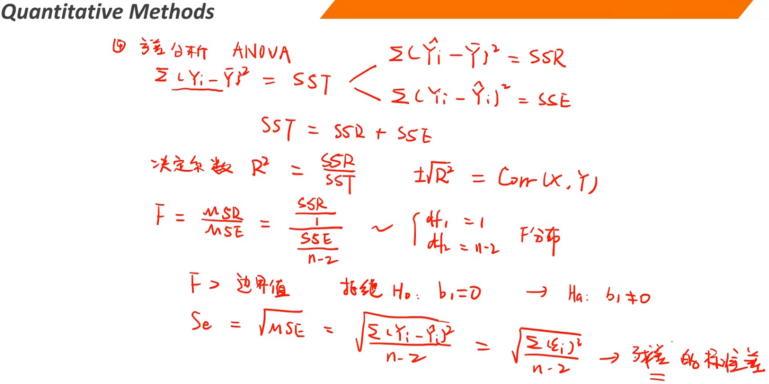 Quantitative Methods
④ 方差分析 ANOVA
Σ(Yi - Ȳ)² = SST
Σ(Ŷi - Ȳ)² = SSR
Σ(Yi - Ŷi)² = SSE
SST = SSR + SSE
决定系数 R² = SSR/SST ±√R² = Corr(X, Y)
F = MSR/MSE = (SSR/1)/(SSE/(n-2)) ~ { df₁ = 1 df₂ = n-2 F分布
F > 边界值 拒绝 H₀: b₁=0 → Ha: b₁≠0
Se = √MSE = √(Σ(Yi - Ŷi)²/(n-2)) = √(Σ(εi)²/(n-2)) → 残差的标准差